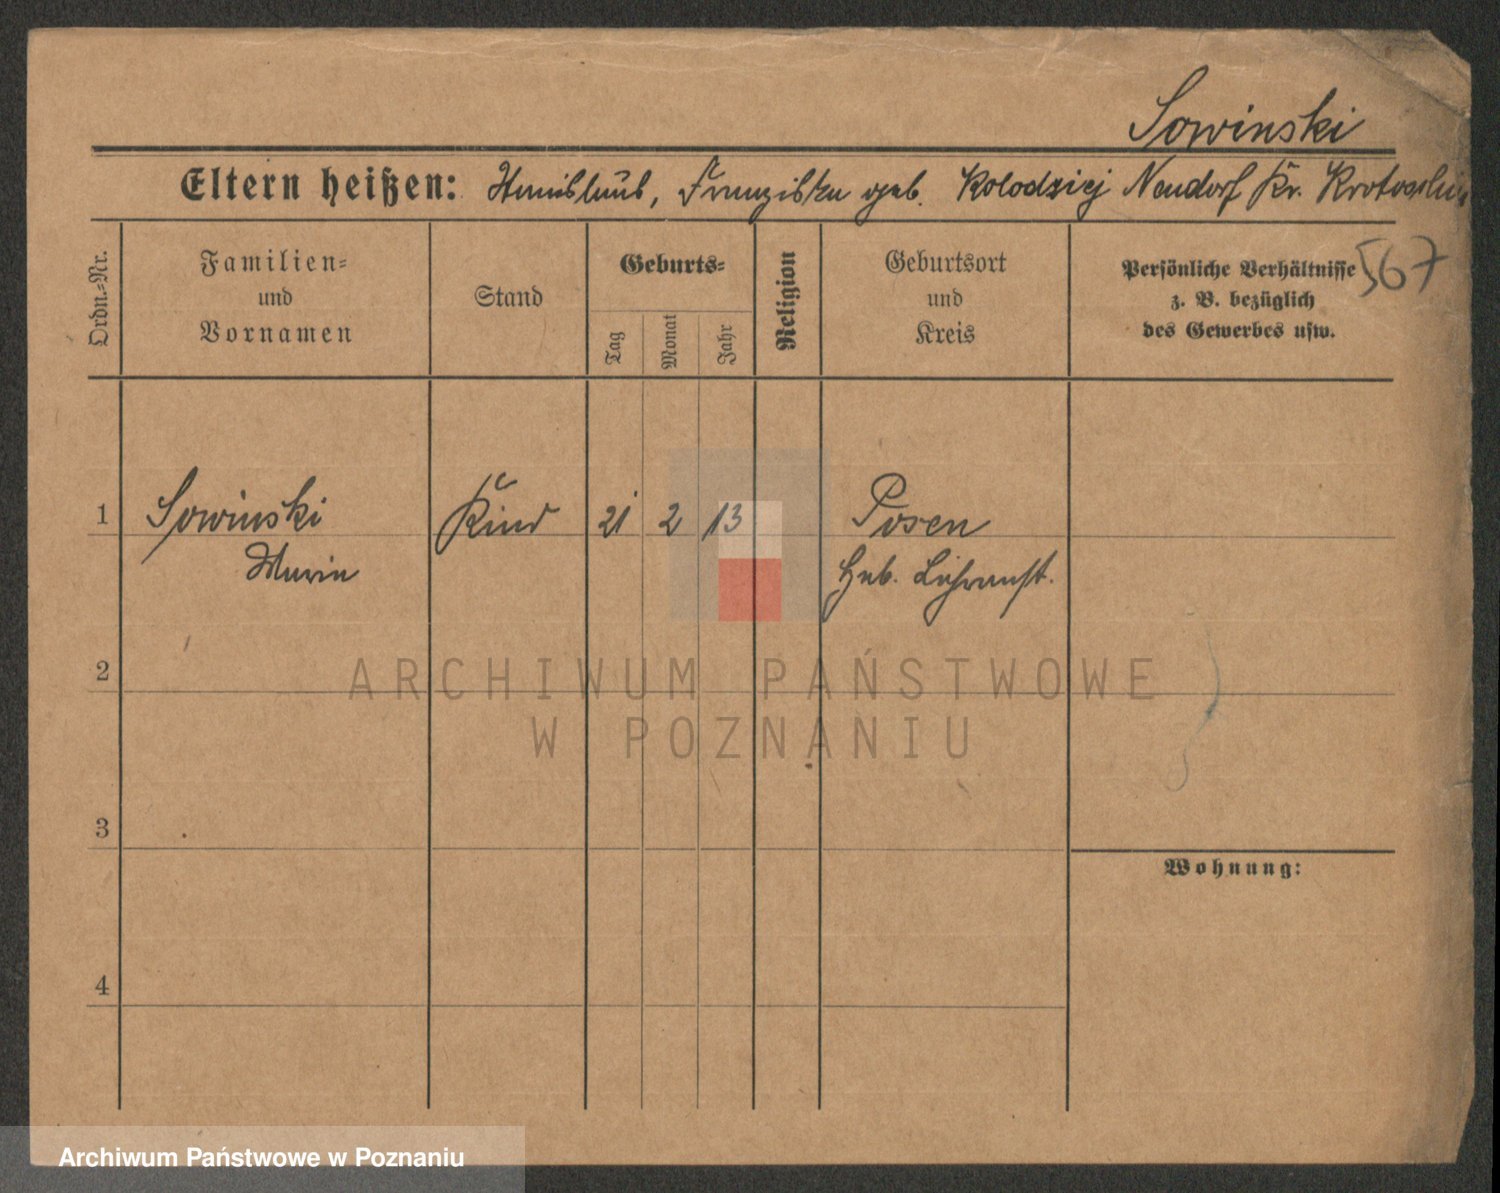 Sowinski
Eltern heißen: Stanislaus, Franziska geb. Kolodziej Neudorf Kr. Krotoschin
Ordn.-Nr.
Familien-
und
Vornamen
Stand
Geburts-
Tag
Monat
Jahr
Religion
Geburtsort
und
Kreis
Persönliche Verhältnisse
z. B. bezüglich
des Gewerbes usw.
567
1
Sowinski
Maria
Kind
21
2
13
Posen
Heb. Lehranst.
2
3
4
Wohnung:
ARCHIWUM PAŃSTWOWE
W POZNANIU
Archiwum Państwowe w Poznaniu